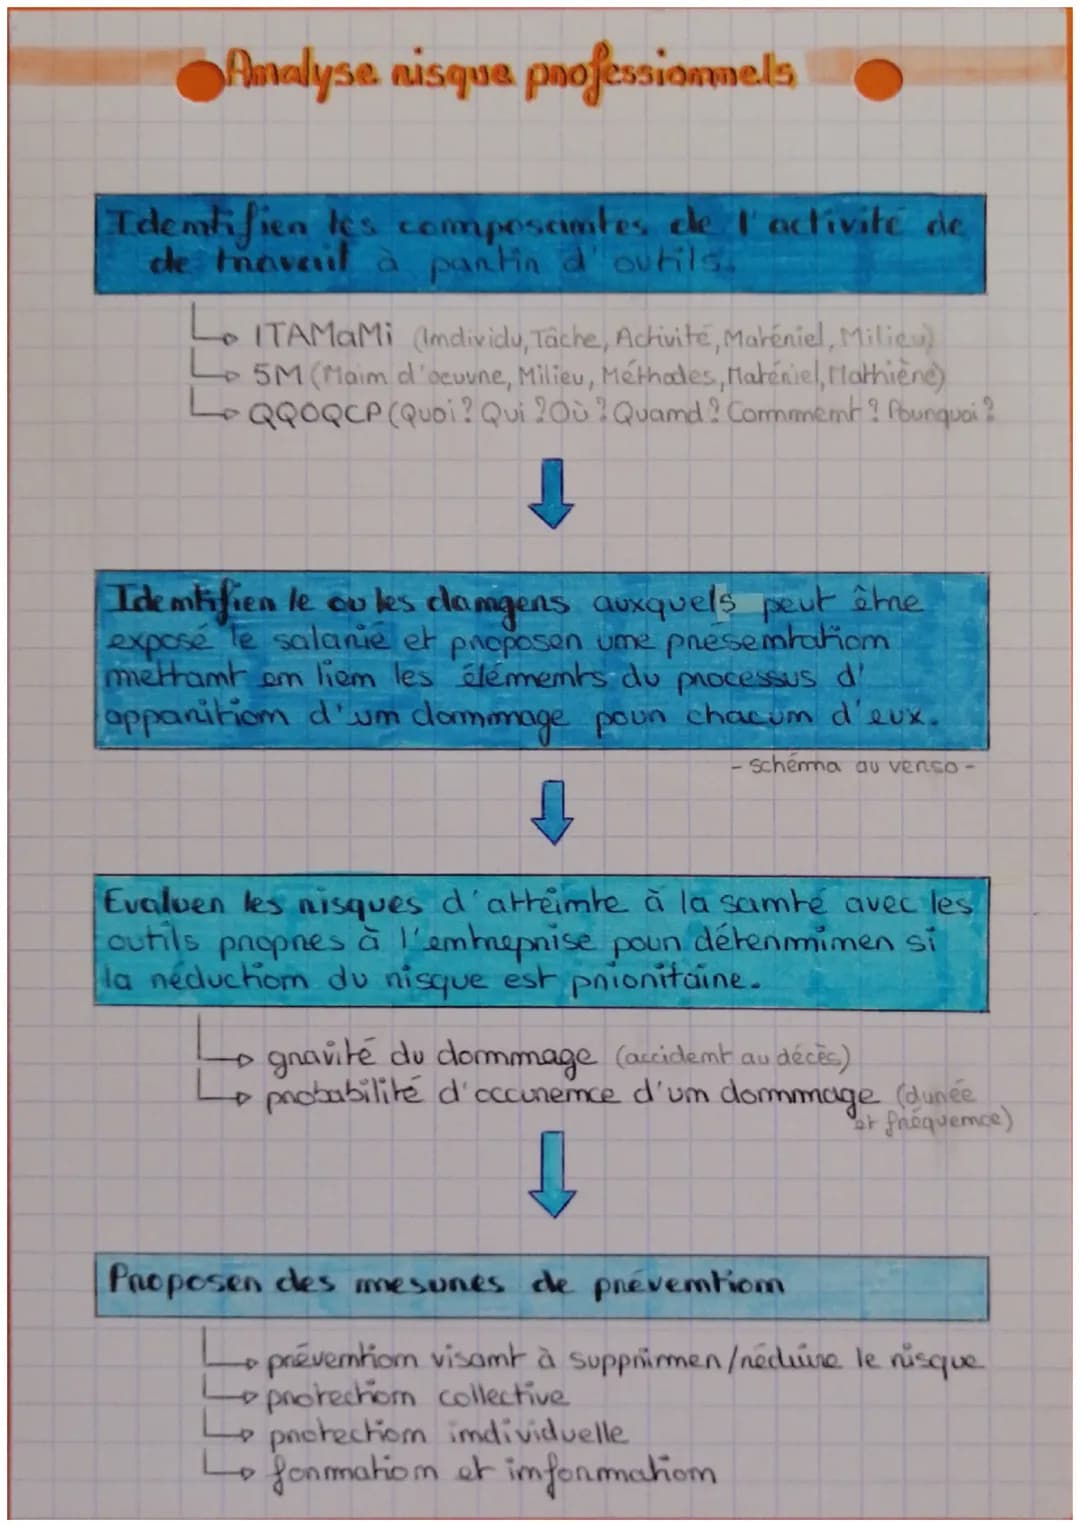 Analyse risque professionnels
Identifier les composantes de l'activité de
de travail à partir d'outils.
ITAMaMi (Individu, Tâche, Activité, Matériel, Milieu)
5M (Main d'oeuvre, Milieu, Méthodes, Matériel, Mathière)
QQOQCP (Quoi? Qui? Où? Quand? Comment? Pourquoi?
Identifier le ou les dangers auxquels peut être
exposé le salarié et proposer une présentation
mettant en lien les éléments du processus d'
apparition d'un dommage pour chacun d'eux.
- schéma au verso -
Evaluer les risques d'atteinte à la santé avec les
outils propres à l'entreprise pour déterminer si
la réduction du risque est prioritaire.
gravité du dommage (accident au décès)
probabilité d'occurence d'un dommage (durée
et fréquence)
Proposer des mesures de prévention
prévention visant à supprimer/réduire le risque
protection collective
protection individuelle
formation et information